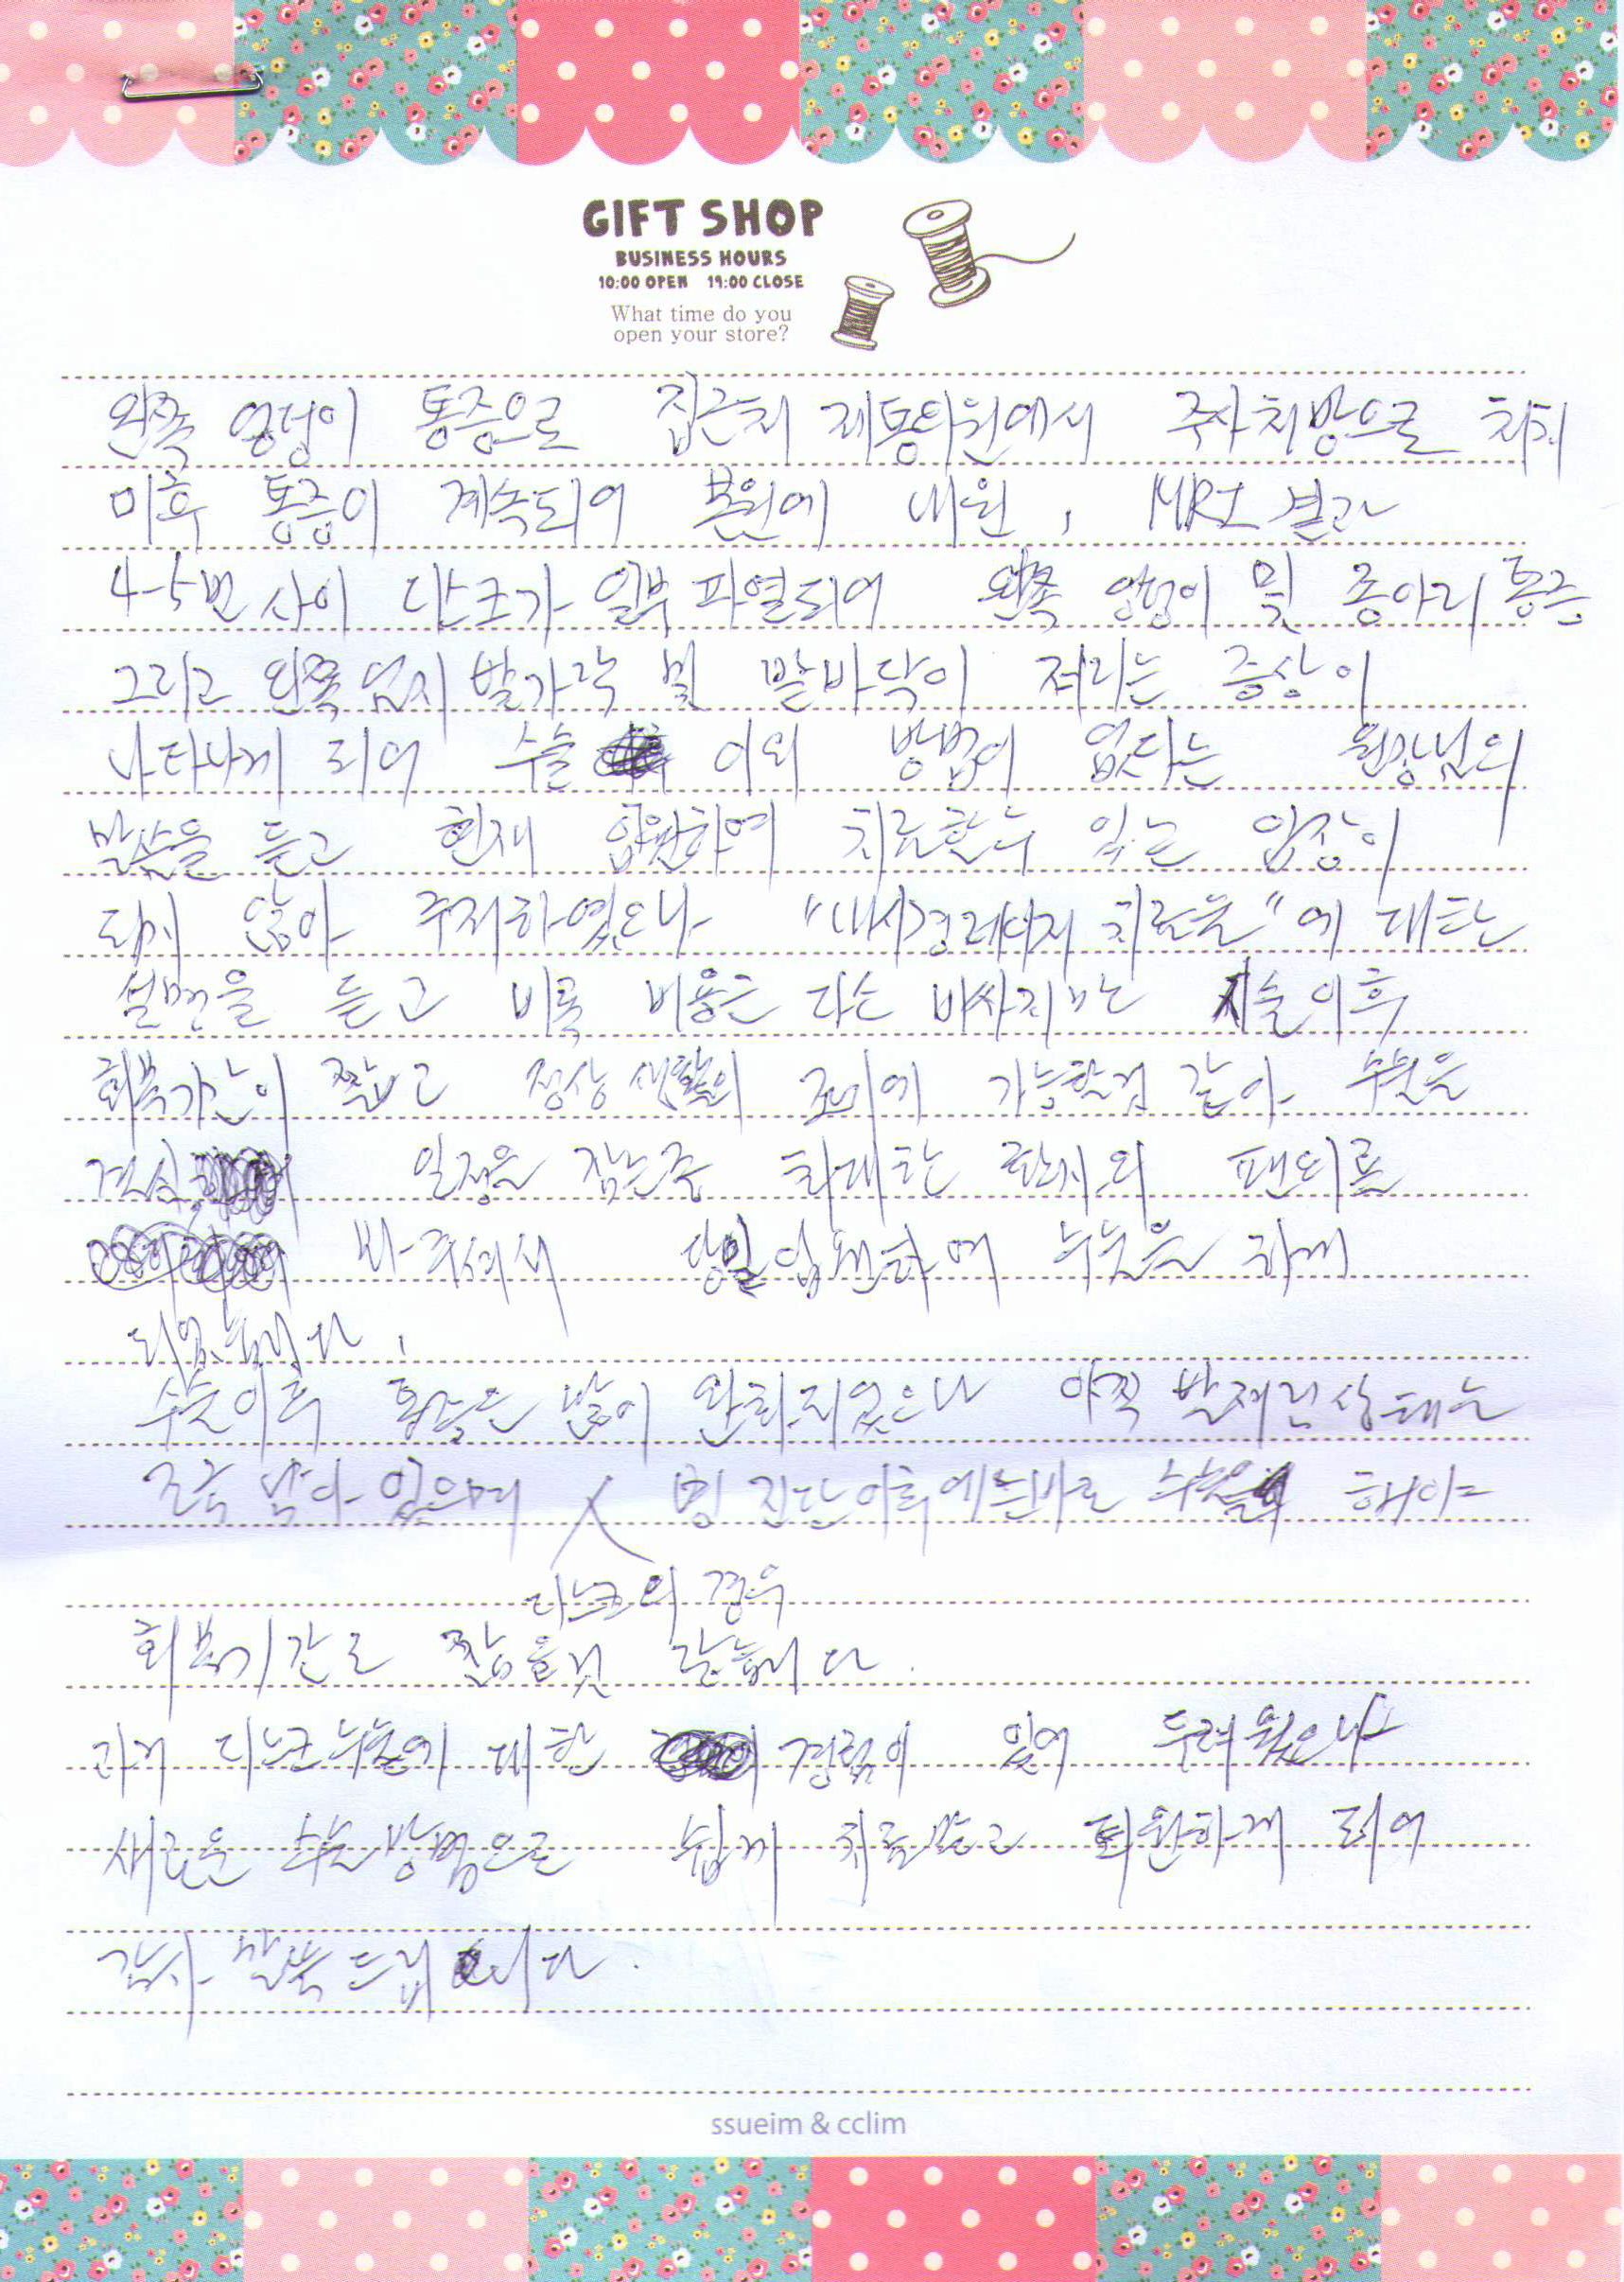 GIFT SHOP
BUSINESS HOURS
10:00 OPEN 19:00 CLOSE
What time do you
open your store?
왼쪽 엉덩이 통증으로 집근처 제통의원에서 주사처방으로 처치
이후 통증이 계속되어 본원에 내원, MRI 결과
4-5번 사이 디스크가 일부 파열되어 왼쪽 엉덩이 및 종아리 통증
그리고 왼쪽 엄지 발가락 및 발바닥이 저리는 증상이
나타나게 되어 수술 이외 방법이 없다는 원장님의
말씀을 듣고 현재 입원하여 치료할수 있는 입장이
되지 않아 주저하였으나 "내시경 레이저 치료술"에 대한
설명을 듣고 비록 비용은 다소 비싸지만 시술이후
회복기간이 짧고 정상 생활의 가능할것 같아 수술을
결심 일정을 잡는중 최대한 환자의 편의를
봐주셔서 당일 입원하여 수술을 하게
되었습니다.
수술이후 통증은 많이 완화되었으나 아직 발저린 상태는
조금 남아 있으며 병 진단이후에는 바로 수술을 해야
디스크의 경우
회복기간도 짧을것 같습니다.
과거 디스크 수술에 대한 경험이 있어 두려웠으나
새로운 수술 방법으로 쉽게 치료받고 퇴원하게 되어
감사 말씀 드립니다.
ssueim & cclim